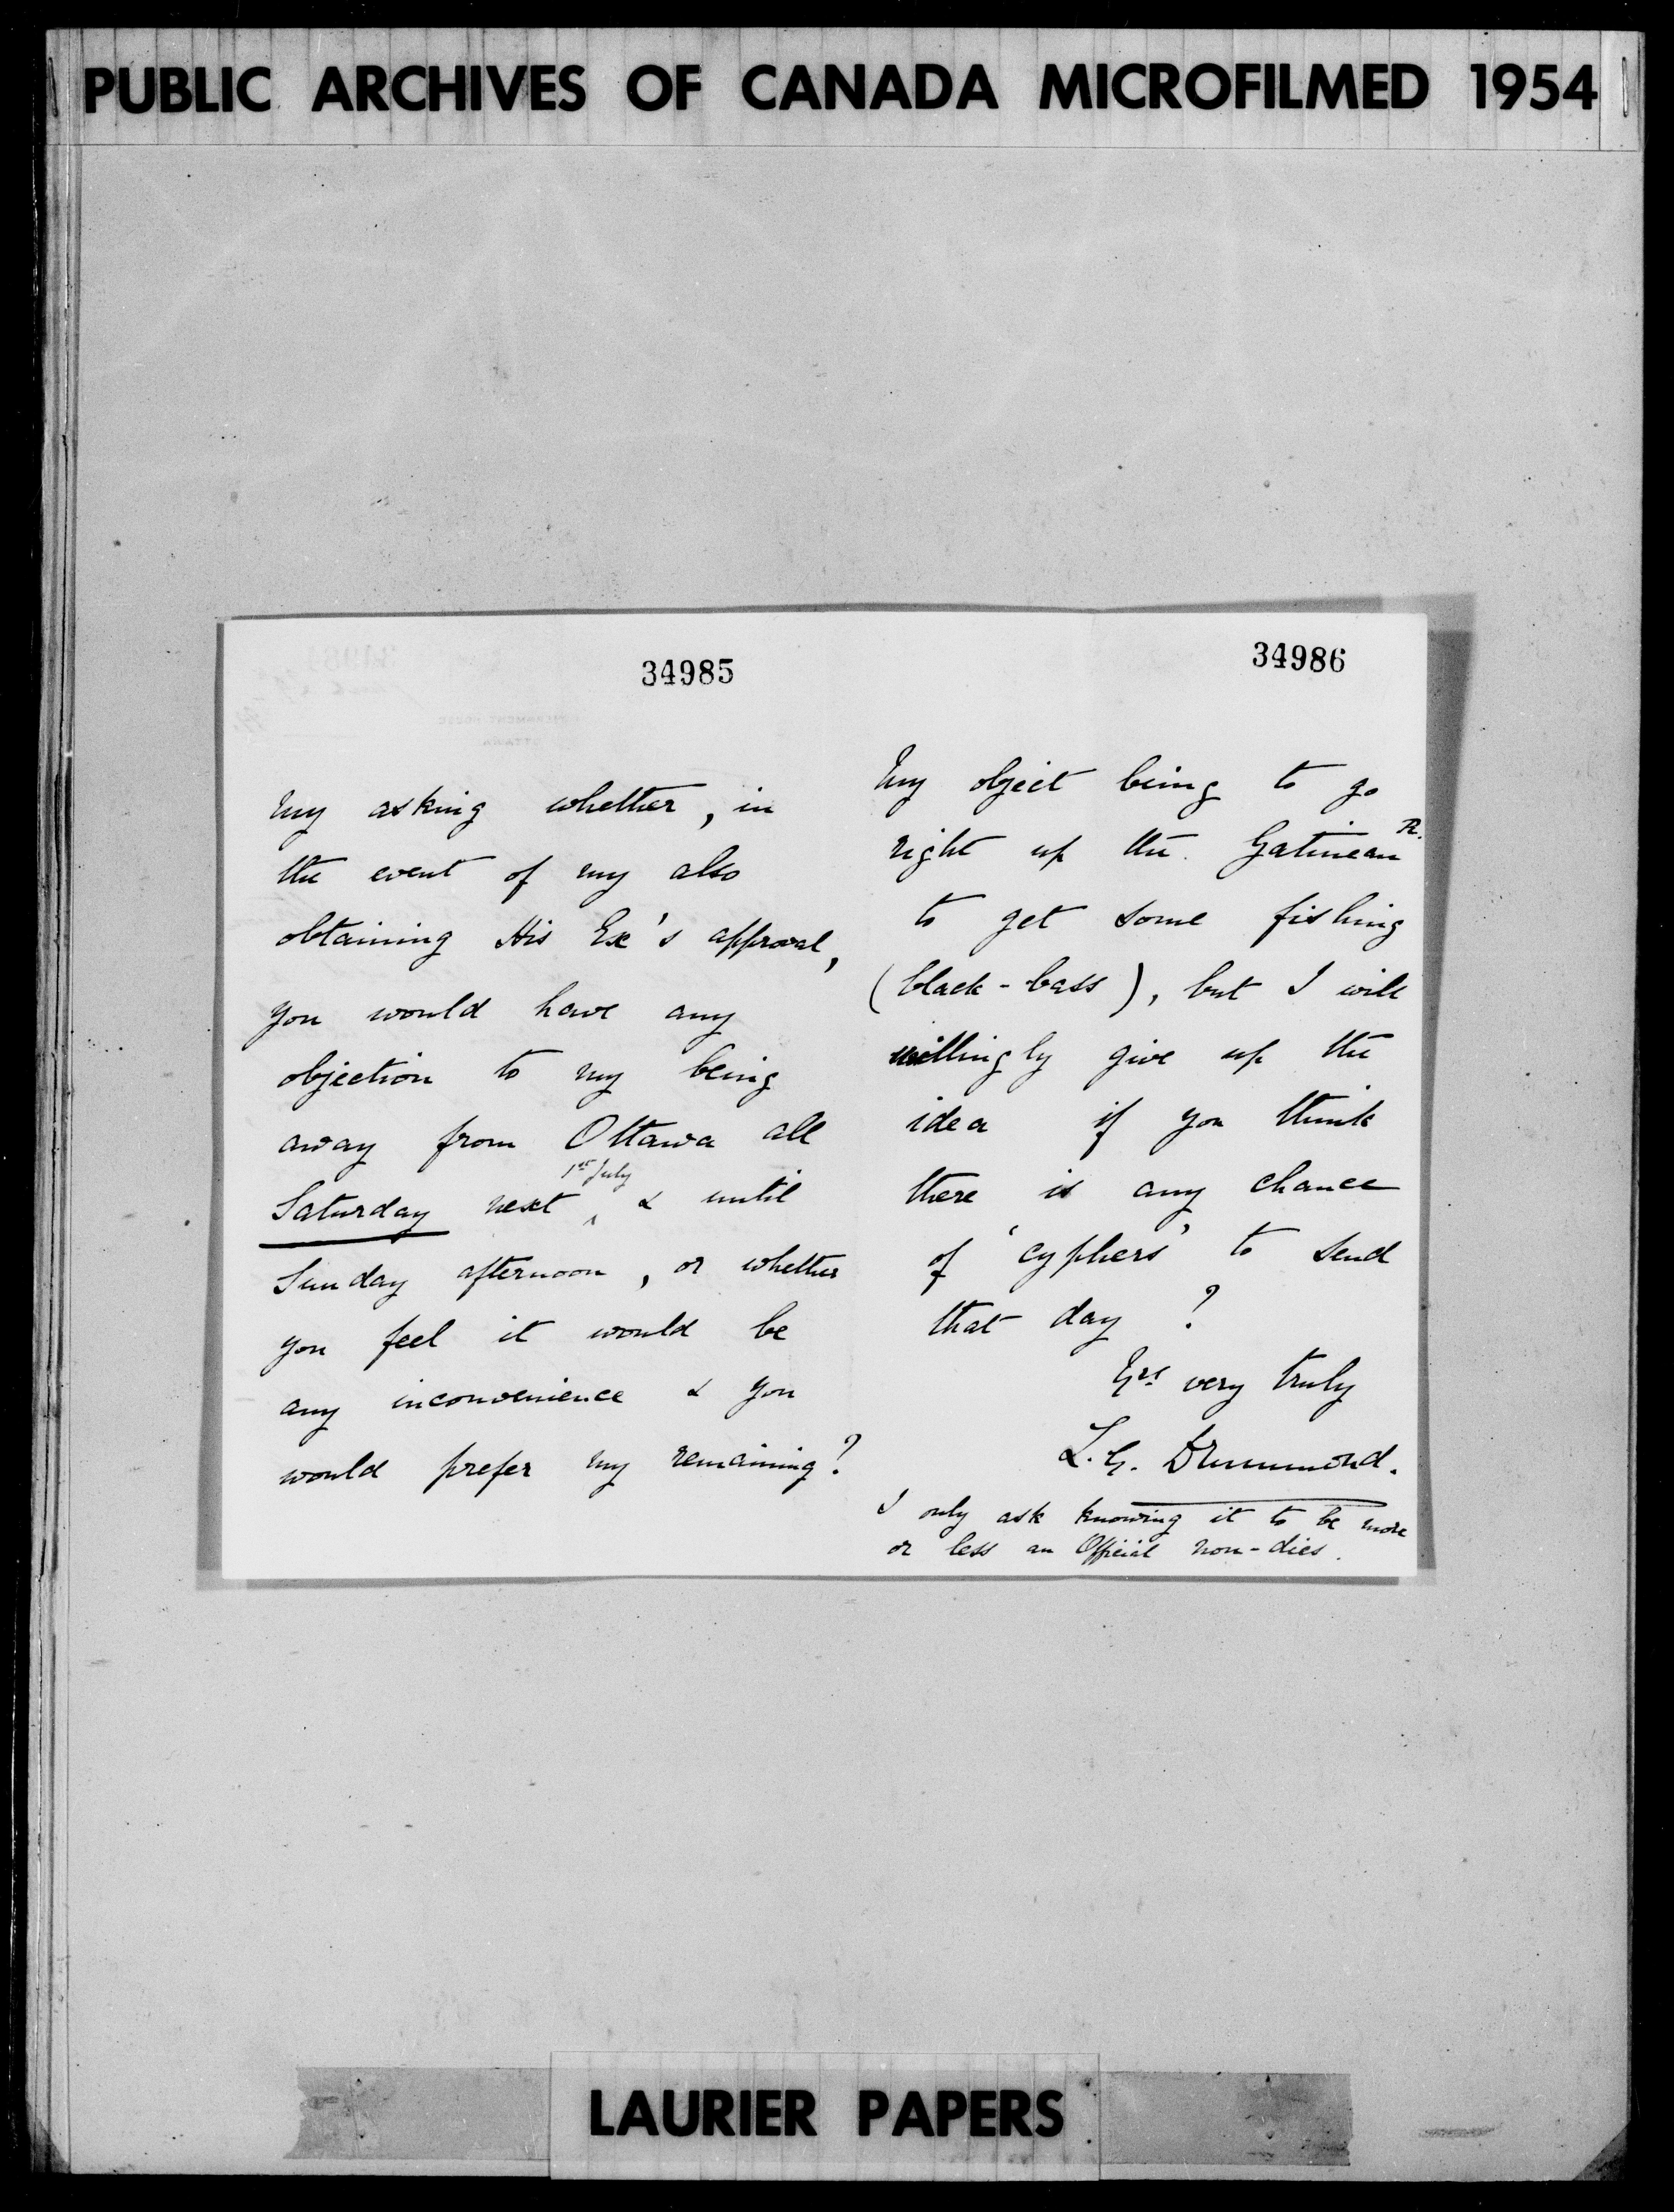 PUBLIC ARCHIVES OF CANADA MICROFILMED 1954
34985
my asking whether, in
the event of my also
obtaining His Ex's approval,
you would have any
objection to my being
away from Ottawa all
Saturday next 1st July & until
Sunday afternoon, or whether
you feel it would be
any inconvenience & you
would prefer my remaining?
34986
My object being to go
right up the Gatineau R.
to get some fishing
(black-bass), but I will
willingly give up the
idea if you think
there is any chance
of 'cyphers' to send
that day?
Yrs very truly
L.G. Drummond.
I only ask knowing it to be more
or less an Official non-dies.
LAURIER PAPERS